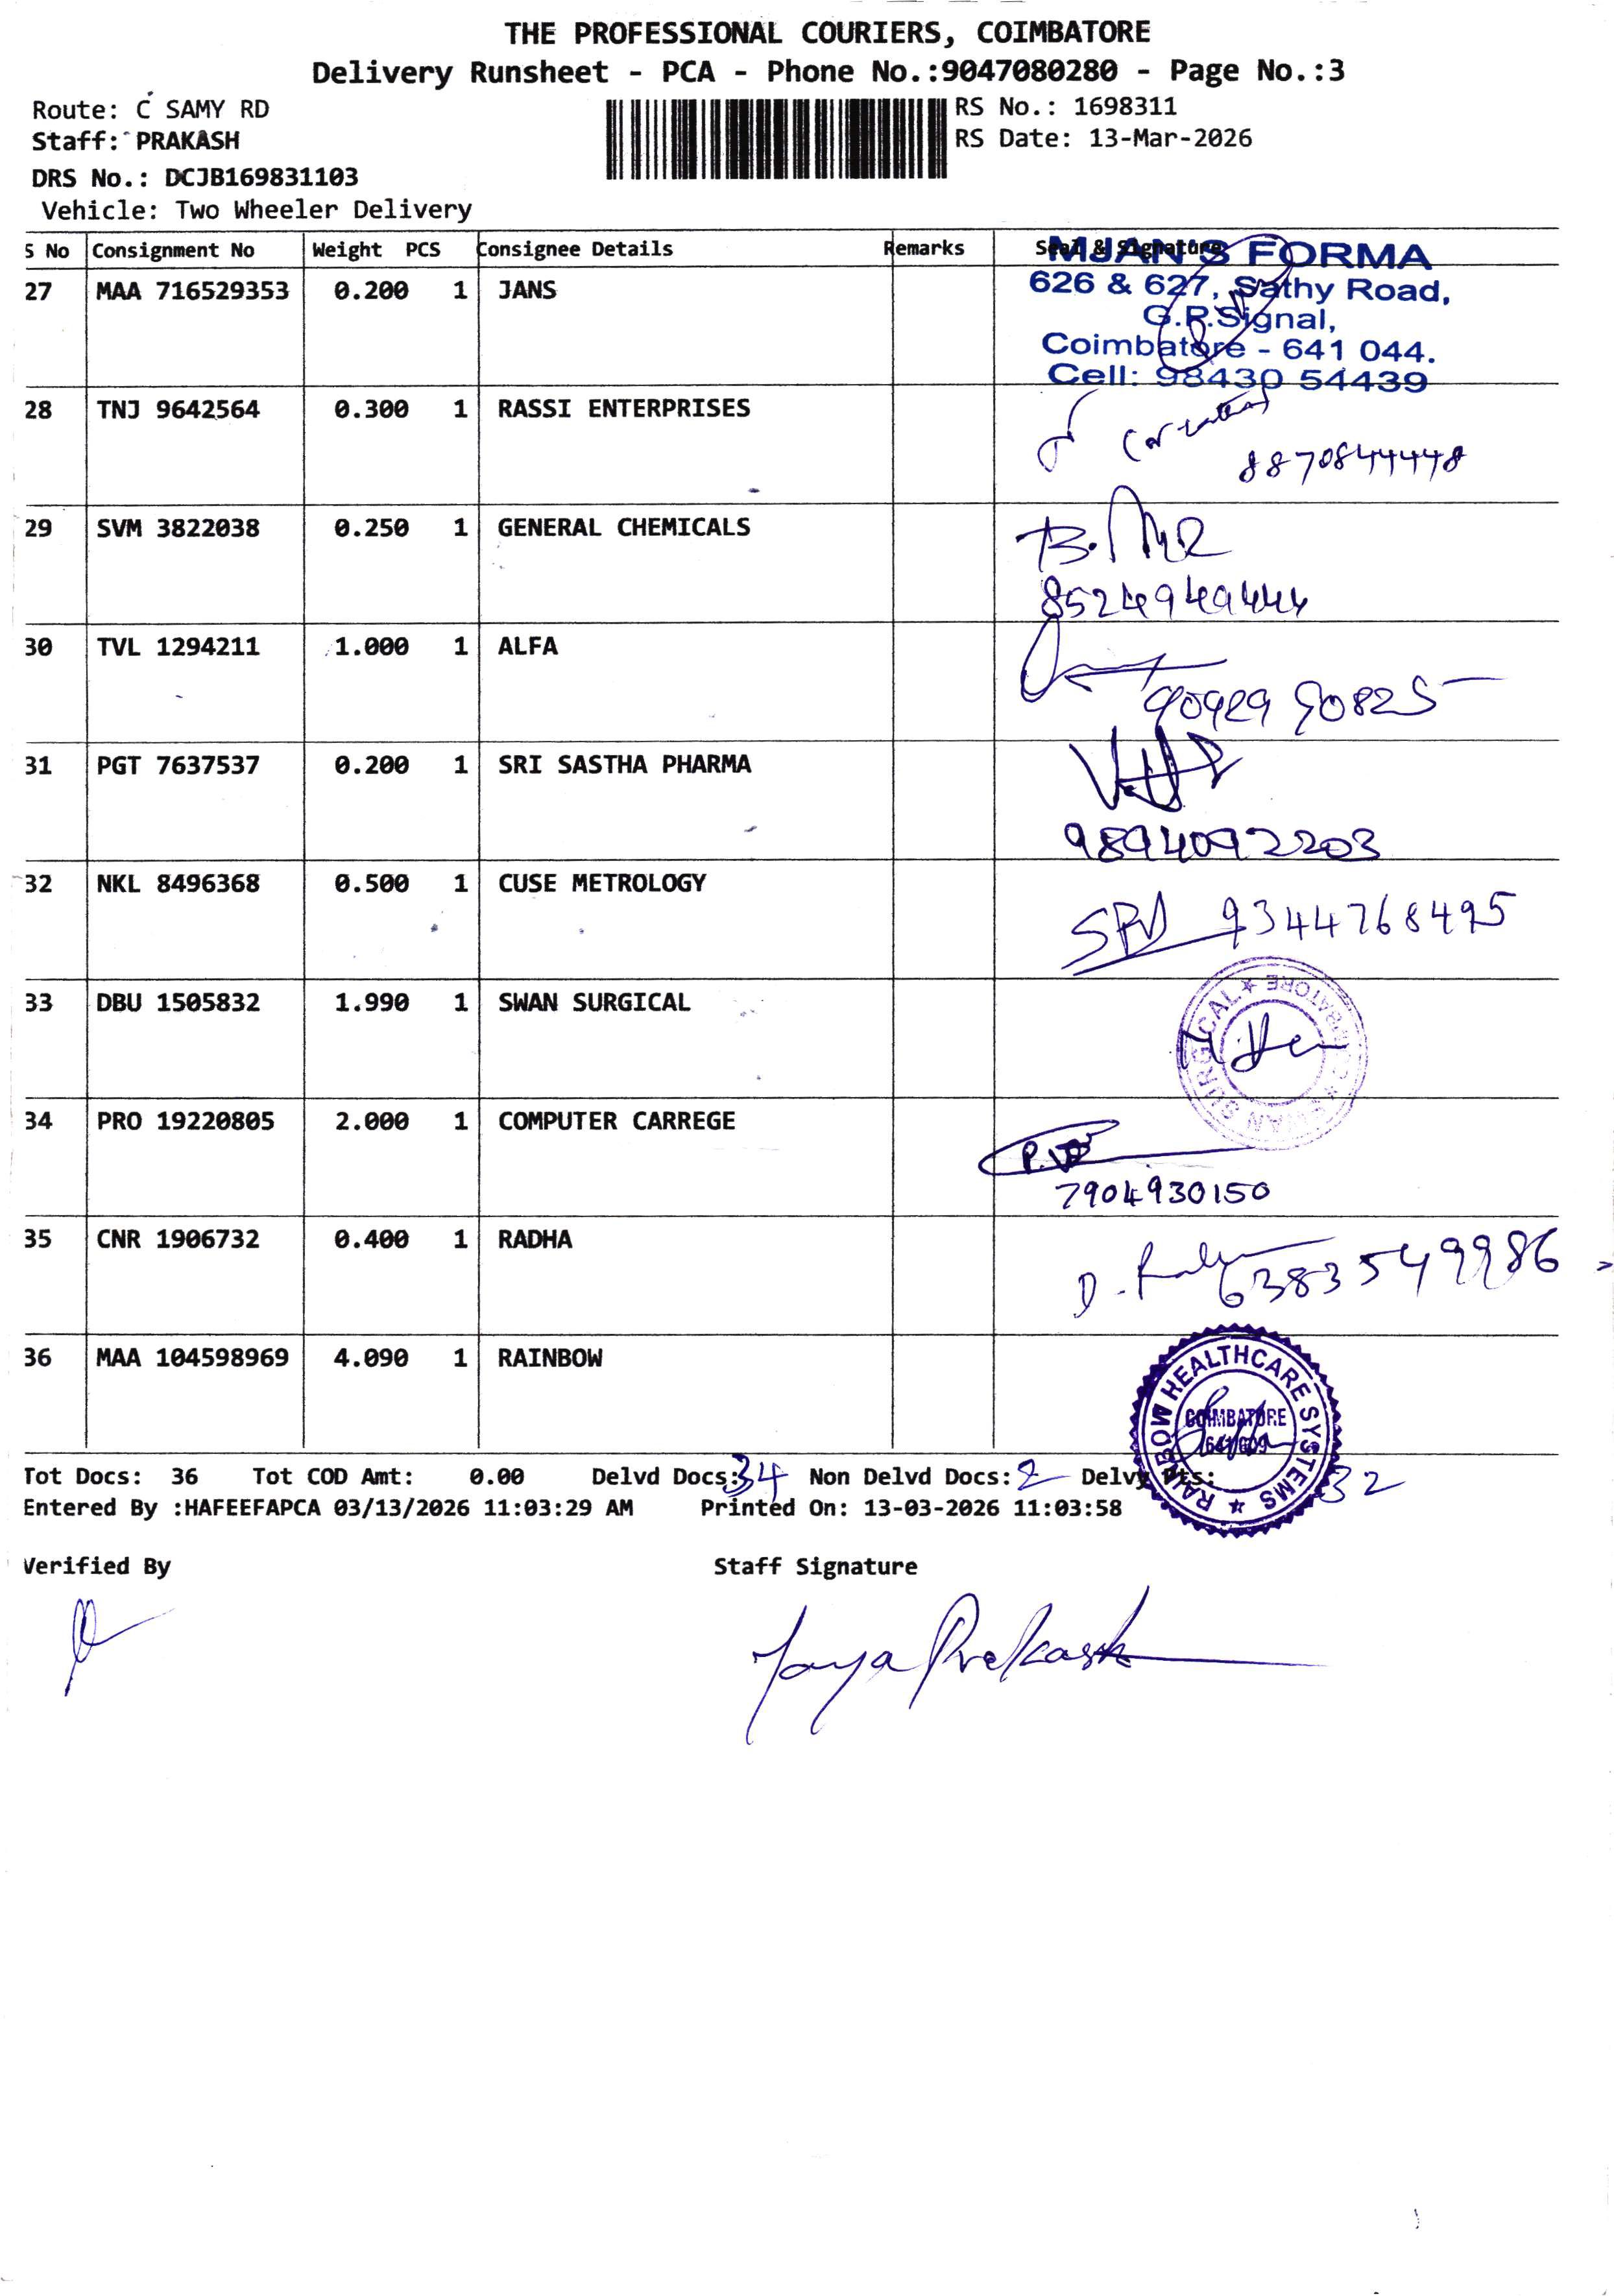 THE PROFESSIONAL COURIERS, COIMBATORE
Delivery Runsheet - PCA - Phone No.:9047080280 - Page No.:3
Route: C SAMY RD
RS No.: 1698311
Staff: PRAKASH
RS Date: 13-Mar-2026
DRS No.: DCJB169831103
Vehicle: Two Wheeler Delivery
S No Consignment No Weight PCS Consignee Details Remarks Seal & Signature
MJAN'S FORMA
27 MAA 716529353 0.200 1 JANS
626 & 627, Sathy Road,
G.P.Signal,
Coimbatore - 641 044.
Cell: 98430 54439
28 TNJ 9642564 0.300 1 RASSI ENTERPRISES
8870844448
29 SVM 3822038 0.250 1 GENERAL CHEMICALS
8524949444
30 TVL 1294211 1.000 1 ALFA
90929 90825
31 PGT 7637537 0.200 1 SRI SASTHA PHARMA
9894092203
32 NKL 8496368 0.500 1 CUSE METROLOGY
9344768495
33 DBU 1505832 1.990 1 SWAN SURGICAL
SWAN SURGICAL ★ COIMBATORE ★
34 PRO 19220805 2.000 1 COMPUTER CARREGE
7904930150
35 CNR 1906732 0.400 1 RADHA
6383549986
36 MAA 104598969 4.090 1 RAINBOW
RAINBOW HEALTHCARE SYSTEMS ★
COIMBATORE
641009
Tot Docs: 36 Tot COD Amt: 0.00 Delvd Docs: 34 Non Delvd Docs: 2 Delvy Pts: 32
Entered By :HAFEEFAPCA 03/13/2026 11:03:29 AM Printed On: 13-03-2026 11:03:58
Verified By Staff Signature
Jaya Prakash